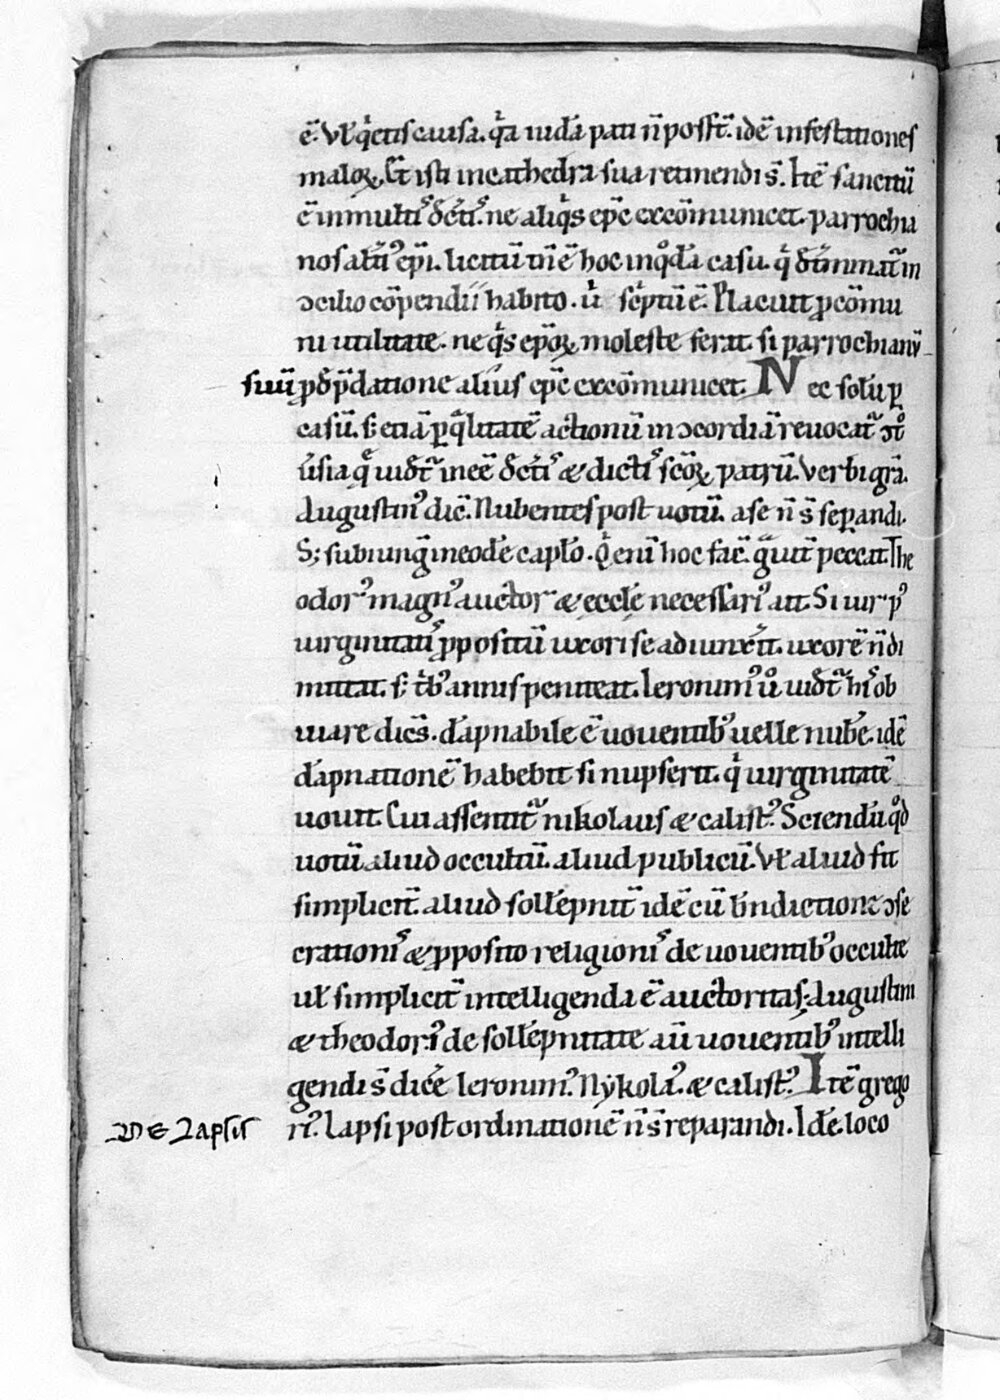 ē. Vł q̄etis causa. q̄a iuda pati n̄ possēt. idē infestationes
maloꝝ. Gͭ isti in cathedra sua retinendi s̄. Itē sancitū
ē in multiˢ dec̄tiˢ. ne aliqͥs ep̄c excōmunicet parrochia
nos alt̄iꝰ ep̄i. licitū tn̄ ē hoc in qͦdā casu. qͥ det̄minat᷑ in
ɔcilio cōpendii habito. uͥ sc̄ptū ē. Placuit ꝓ cōmu
ni utilitate. ne qͥs ep̄oꝝ moleste ferat. si parrochianū
suū ꝓ dep̄datione alius ep̄c excōmunicet. Nec solū ꝑ
casū. sꝫ etiā ꝑ q̄litatē actionū in ɔcordiā reuocat᷑ ɔtͦ
ūsia q̄ uident᷑ inēe dec̄tiˢ & dictiˢ sc̄oꝝ patrū. Verbi gr̄a.
Augustinꝰ dic̄. Nubentes post uotū. a se n̄ s̄ sepandi.
Sꝫ subiungit in eodē caplo. Qͥ enī hoc fac̄. gͣuit᷑ peccat. The
odorꝰ magnꝰ auctor & ecclę necessariꝰ ait. Si uir pꝰ
uirginitatiˢ ꝓpositū uxori se adiunx̄it. uxorē n̄ di
mittat. sꝫ tͥbꝰ annis peniteat. Ieronimꝰ uͦ uidet᷑ hiˢ ob
uiare dicēs. dāpnabile ē uouentibꝰ uelle nubē. idē
dāpnationē habebit si nupserit. qͥ uirginitatē
uouit Cui assentit᷑ nikolaus & calistꝰ. Sciendū qͦd
uotū aliud occultū. aliud publicū. Vł aliud fit
simplicit̄. aliud sollēpnit̄ idē cū b̄ndictione ɔse
crationiˢ & ꝓposito religioniˢ de uouentibꝰ occulte
uł simplicit̄ intelligenda ē auctoritas. Augustini
& theodori. de sollēpnitate aū uouentibꝰ intelli
gendi s̄ dicē Ieronimꝰ. Nykolaꝰ. & calistꝰ. Itē grego
riꝰ. Lapsi post ordinationē n̄ s̄ reparandi. Idē. loco
De Lapsis